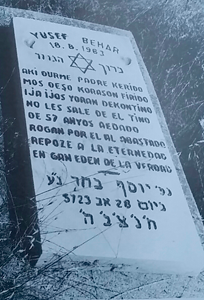 YUSEF BEHAR
18.8.1963
ברוך הגבר
AKI DURME PADRE KERIDO
MOS DEŞO KORASON FIRIDO
IJA IJOS YORAN DEKONTINO
NO LES SALE DE EL TINO
DE 57 ANYOS AEDADO
ROGAN POR EL AL ABASTADO
REPOZE A LA ETERNEDAD
EN GAN EDEN DE LA VERDAD
יוסף בחר נ"ע
ביום 28 אב 5723
ת'נ'צ'ב'ה'